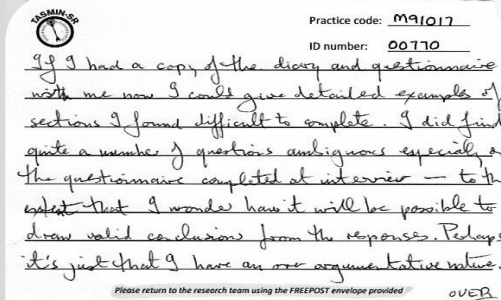 TASMIN-SR
Practice code: M91017
ID number: 00770
If I had a copy of the diary and questionnaire
with me now I could give detailed examples of
sections I found difficult to complete. I did find
quite a number of questions ambiguous especially
the questionnaire completed at interview — to the
extent that I wonder how it will be possible to
draw valid conclusions from the responses. Perhaps
it's just that I have an over argumentative nature.
Please return to the research team using the FREEPOST envelope provided
OVER